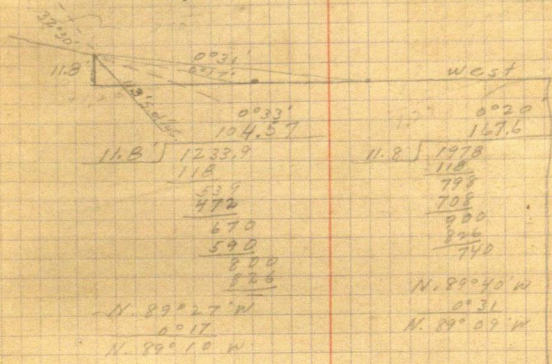 32°30'
0°31'
0°17'
11.8
west
0°33'
104.57
11.8 ) 1233.9
118
539
472
670
590
800
826
N. 89°27' W
0°17
N. 89°10 W
0°20
167.6
11.8 ) 1978
118
798
708
900
826
740
N. 89°40' W
0°31
N. 89°09' W